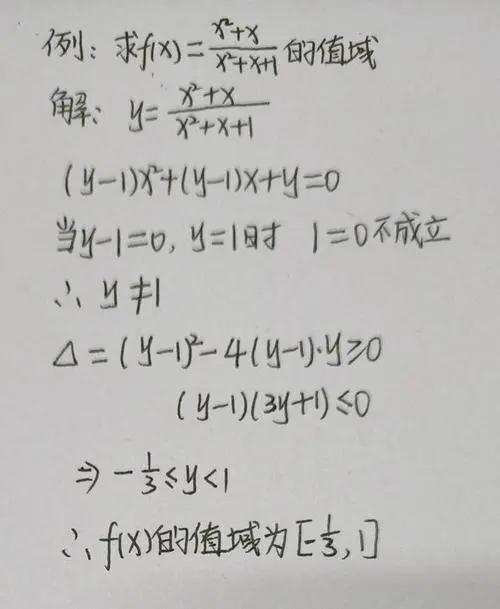 例：求f(x)=\frac{x²+x}{x²+x+1}的值域
解：y=\frac{x²+x}{x²+x+1}
(y-1)x²+(y-1)x+y=0
当y-1=0，y=1时 1=0不成立
∴ y≠1
Δ=(y-1)²-4(y-1)·y≥0
(y-1)(3y+1)≤0
⇒ -\frac{1}{3}≤y<1
∴f(x)的值域为[-\frac{1}{3},1]